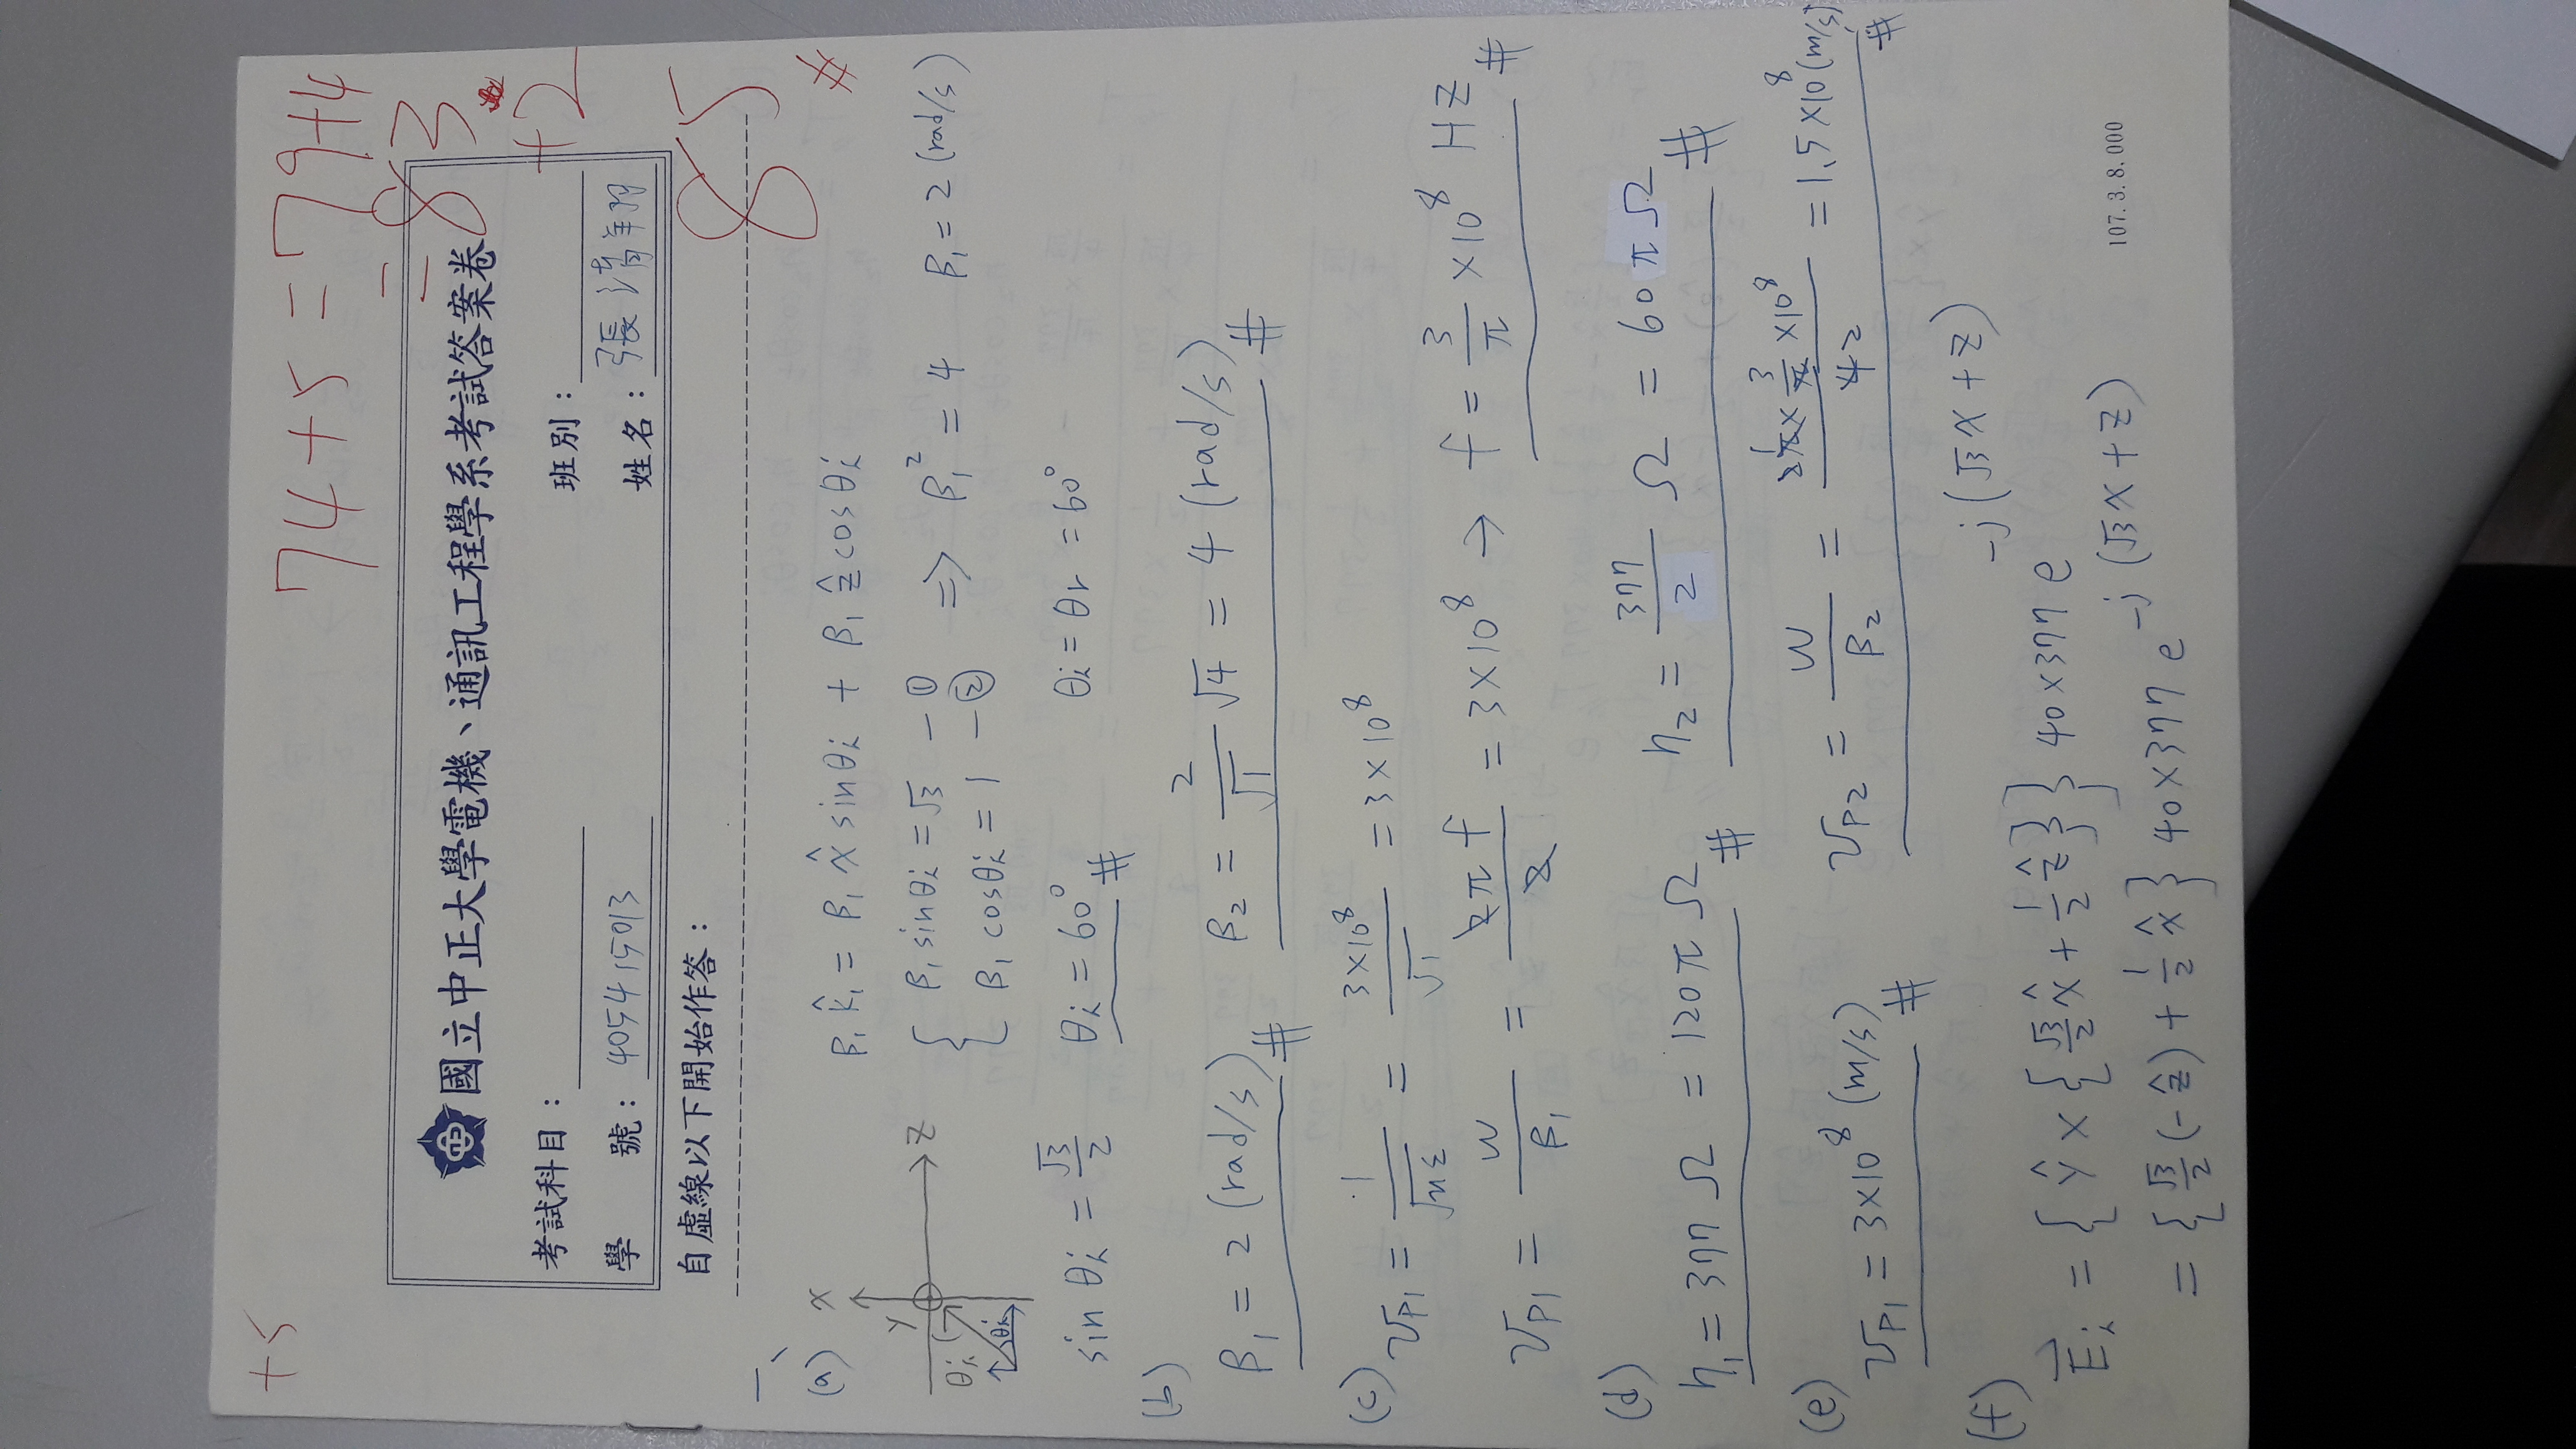 +5
74+5=79+4
=83
+2
85
#
國立中正大學電機、通訊工程學系考試答案卷
考試科目：
班別：
學 號：405415013
姓名：張清
自虛線以下開始作答：
一、
(a)
X
Y
Z
θi
θi
β₁k̂₁ = β₁x̂ sinθi + β₁ẑ cosθi
{ β₁ sinθi = √3 — ①
β₁ cosθi = 1 — ②
=> β₁² = 4 β₁ = 2 (rad/s)
sin θi = √3/2 θi = 60° # θi = θr = 60°
(b)
β₁ = 2 (rad/s) # β₂ = 2/√1 √4 = 4 (rad/s) #
(c) υp₁ = 1/√με = 3×10⁸/√1 = 3×10⁸
υp₁ = w/β₁ = 2πf/2 = 3×10⁸ → f = 3/π ×10⁸ HZ #
(d)
η₁ = 377 Ω = 120π Ω # η₂ = 377/2 Ω = 60π Ω #
(e)
υp₁ = 3×10⁸ (m/s) # υp₂ = w/β₂ = 2π× 3/π ×10⁸/42 = 1.5×10⁸ (m/s) #
(f)
E⃗i = { ŷ × { √3/2 x̂ + 1/2 ẑ } } 40×377 e^-j(√3x+z)
= { √3/2 (-ẑ) + 1/2 x̂ } 40×377 e^-j(√3x+z)
107.3.8.000